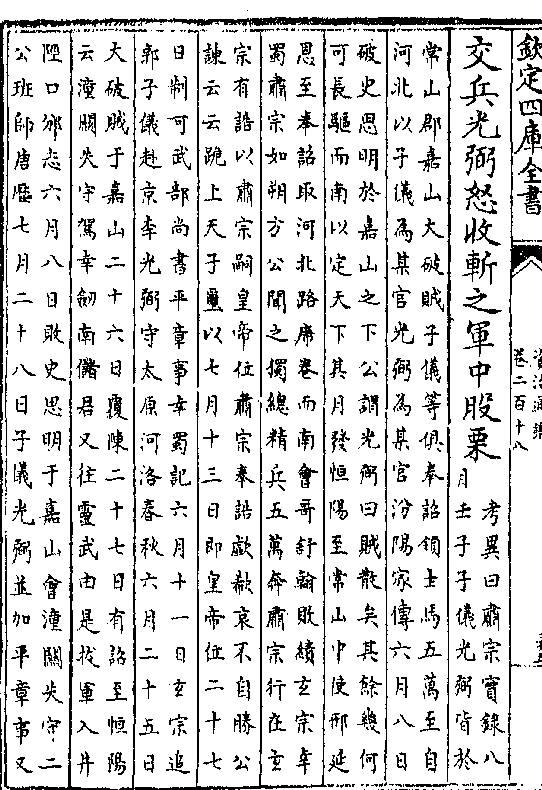 欽定四庫全書
資治通鑑
卷二百十八
交兵光弼怒收斬之軍中股栗
考異曰肅宗實錄八
月壬子子儀光弼皆於
常山郡嘉山大破賊子儀等俱奉詔領士馬五萬至自
河北以子儀為某官光弼為某官汾陽家傳六月八日
破史思明於嘉山之下公謂光弼曰賊散矣其餘幾何
可長驅而南以定天下其月發恒陽至常山中使邢延
恩至奉詔取河北路席卷而南會哥舒翰敗績玄宗幸
蜀肅宗如朔方公聞之獨總精兵五萬奔肅宗行在玄
宗有誥以肅宗嗣皇帝位肅宗奉誥歔欷哀不自勝公
諫云云跪上天子璽以七月十三日即皇帝位二十七
日制可武部尚書平章事幸蜀記六月十一日玄宗追
郭子儀赴京李光弼守太原河洛春秋六月二十五日
大破賊于嘉山二十六日覆陳二十七日有詔至恒陽
云潼關失守駕幸劍南儲君又往靈武由是拔軍入井
陘口邠志六月八日敗史思明于嘉山會潼關失守二
公班師唐歷七月二十八日子儀光弼並加平章事又